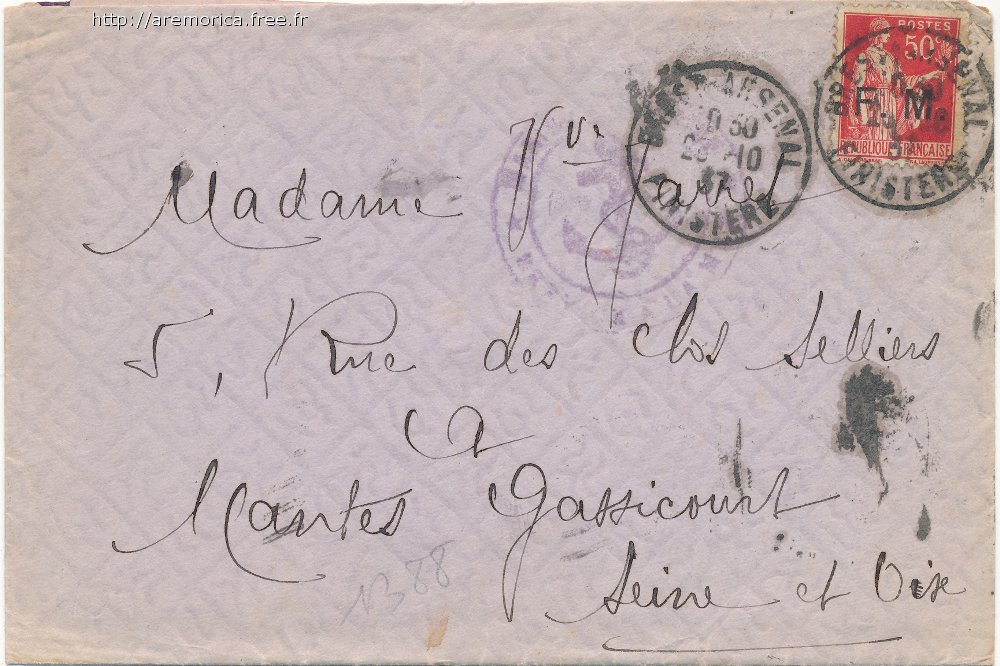 http://aremorica.free.fr
POSTES
50c
F M
REPUBLIQUE FRANCAISE
BREST-ARSENAL
10 30
28 - 10
37
FINISTERE
BREST-ARSENAL
FINISTERE
Madame Vve Jarret
5, Rue des clos Selliers
a
Mantes Gassicourt
Seine et Oise